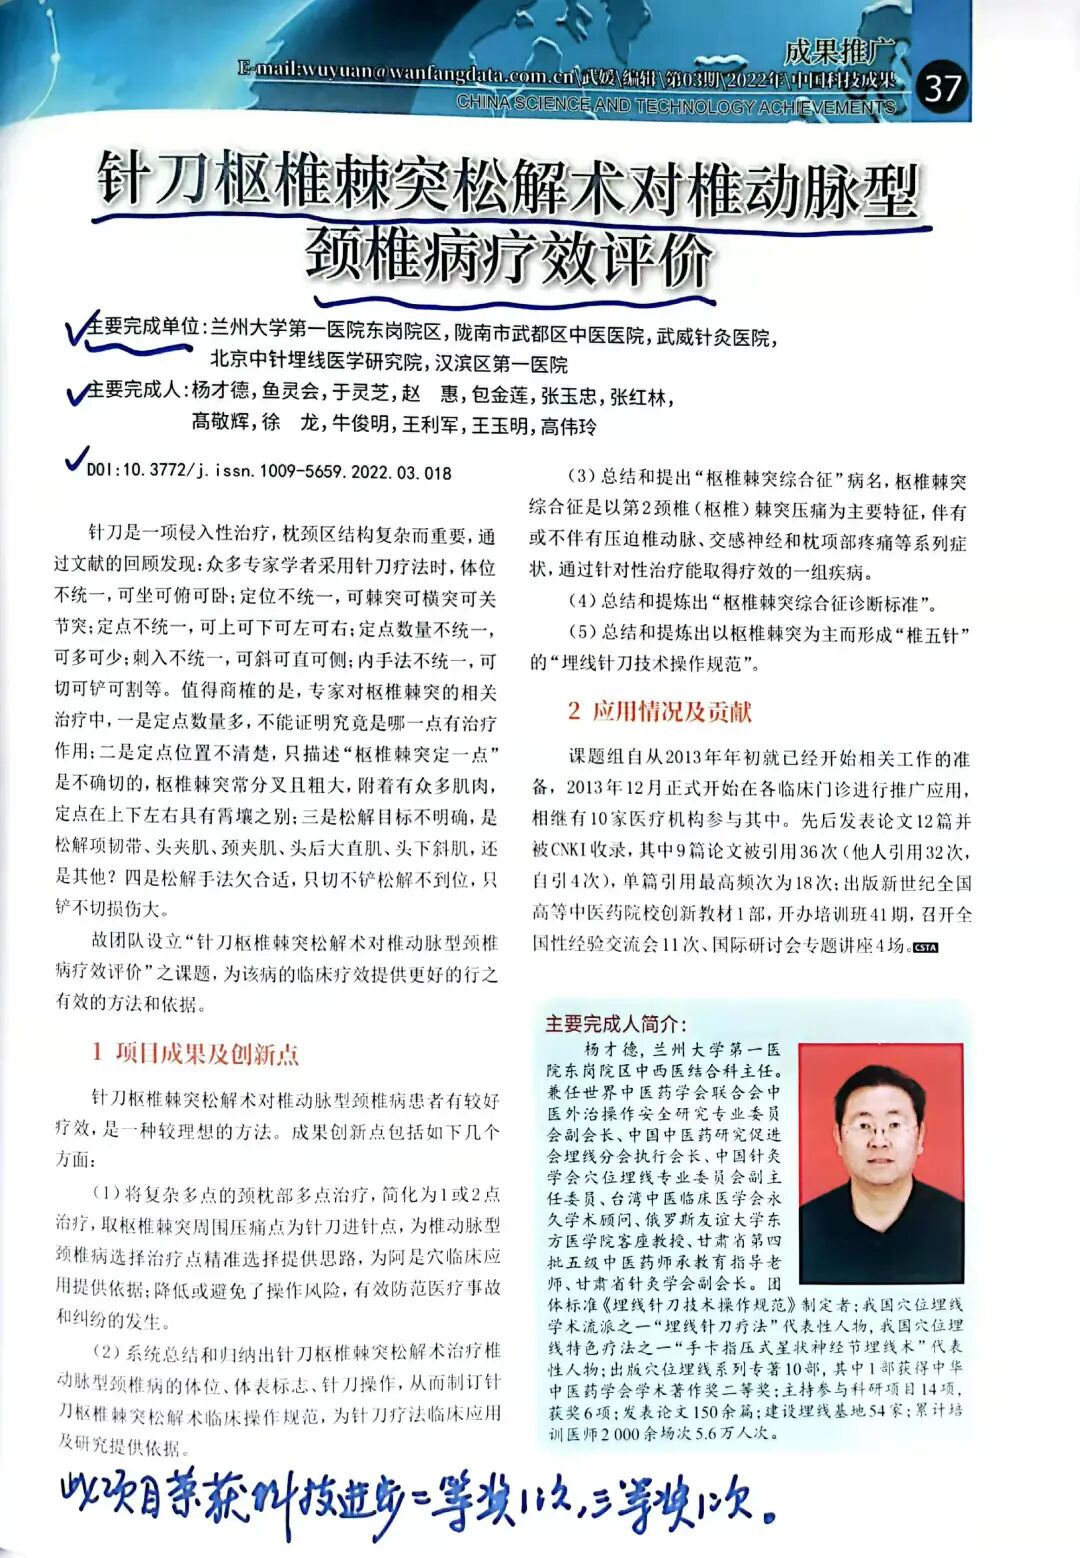 成果推广
E-mail:wuyuan@wanfangdata.com.cn\武媛\编辑\第03期\2022年\中国科技成果
CHINA SCIENCE AND TECHNOLOGY ACHIEVEMENTS
37
针刀枢椎棘突松解术对椎动脉型
颈椎病疗效评价
主要完成单位:兰州大学第一医院东岗院区,陇南市武都区中医医院,武威针灸医院,
北京中针埋线医学研究院,汉滨区第一医院
主要完成人:杨才德,鱼灵会,于灵芝,赵 惠,包金莲,张玉忠,张红林,
髙敬辉,徐 龙,牛俊明,王利军,王玉明,高伟玲
DOI:10.3772/j.issn.1009-5659.2022.03.018
针刀是一项侵入性治疗,枕颈区结构复杂而重要,通
过文献的回顾发现:众多专家学者采用针刀疗法时,体位
不统一,可坐可俯可卧;定位不统一,可棘突可横突可关
节突;定点不统一,可上可下可左可右;定点数量不统一,
可多可少;刺入不统一,可斜可直可侧;内手法不统一,可
切可铲可割等。值得商榷的是,专家对枢椎棘突的相关
治疗中,一是定点数量多,不能证明究竟是哪一点有治疗
作用;二是定点位置不清楚,只描述“枢椎棘突定一点”
是不确切的,枢椎棘突常分叉且粗大,附着有众多肌肉,
定点在上下左右具有霄壤之别;三是松解目标不明确,是
松解项韧带、头夹肌、颈夹肌、头后大直肌、头下斜肌,还
是其他?四是松解手法欠合适,只切不铲松解不到位,只
铲不切损伤大。
故团队设立“针刀枢椎棘突松解术对椎动脉型颈椎
病疗效评价”之课题,为该病的临床疗效提供更好的行之
有效的方法和依据。
1 项目成果及创新点
针刀枢椎棘突松解术对椎动脉型颈椎病患者有较好
疗效,是一种较理想的方法。成果创新点包括如下几个
方面:
(1)将复杂多点的颈枕部多点治疗,简化为1或2点
治疗,取枢椎棘突周围压痛点为针刀进针点,为椎动脉型
颈椎病选择治疗点精准选择提供思路,为阿是穴临床应
用提供依据;降低或避免了操作风险,有效防范医疗事故
和纠纷的发生。
(2)系统总结和归纳出针刀枢椎棘突松解术治疗椎
动脉型颈椎病的体位、体表标志、针刀操作,从而制订针
刀枢椎棘突松解术临床操作规范,为针刀疗法临床应用
及研究提供依据。
(3)总结和提出“枢椎棘突综合征”病名,枢椎棘突
综合征是以第2颈椎(枢椎)棘突压痛为主要特征,伴有
或不伴有压迫椎动脉、交感神经和枕项部疼痛等系列症
状,通过针对性治疗能取得疗效的一组疾病。
(4)总结和提炼出“枢椎棘突综合征诊断标准”。
(5)总结和提炼出以枢椎棘突为主而形成“椎五针”
的“埋线针刀技术操作规范”。
2 应用情况及贡献
课题组自从2013年年初就已经开始相关工作的准
备,2013年12月正式开始在各临床门诊进行推广应用,
相继有10家医疗机构参与其中。先后发表论文12篇并
被CNKI收录,其中9篇论文被引用36次(他人引用32次,
自引4次),单篇引用最高频次为18次;出版新世纪全国
高等中医药院校创新教材1部,开办培训班41期,召开全
国性经验交流会11次、国际研讨会专题讲座4场。CSTA
主要完成人简介:
杨才德,兰州大学第一医
院东岗院区中西医结合科主任。
兼任世界中医药学会联合会中
医外治操作安全研究专业委员
会副会长、中国中医药研究促进
会埋线分会执行会长、中国针灸
学会穴位埋线专业委员会副主
任委员、台湾中医临床医学会永
久学术顾问、俄罗斯友谊大学东
方医学院客座教授、甘肃省第四
批五级中医药师承教育指导老
师、甘肃省针灸学会副会长。团
体标准《埋线针刀技术操作规范》制定者;我国穴位埋线
学术流派之一“埋线针刀疗法”代表性人物,我国穴位埋
线特色疗法之一“手卡指压式星状神经节埋线术”代表
性人物;出版穴位埋线系列专著10部,其中1部获得中华
中医药学会学术著作奖二等奖;主持参与科研项目14项,
获奖6项;发表论文150余篇;建设埋线基地54家;累计培
训医师2 000余场次5.6万人次。
此项目荣获科技进步二等奖1次,三等奖1次。